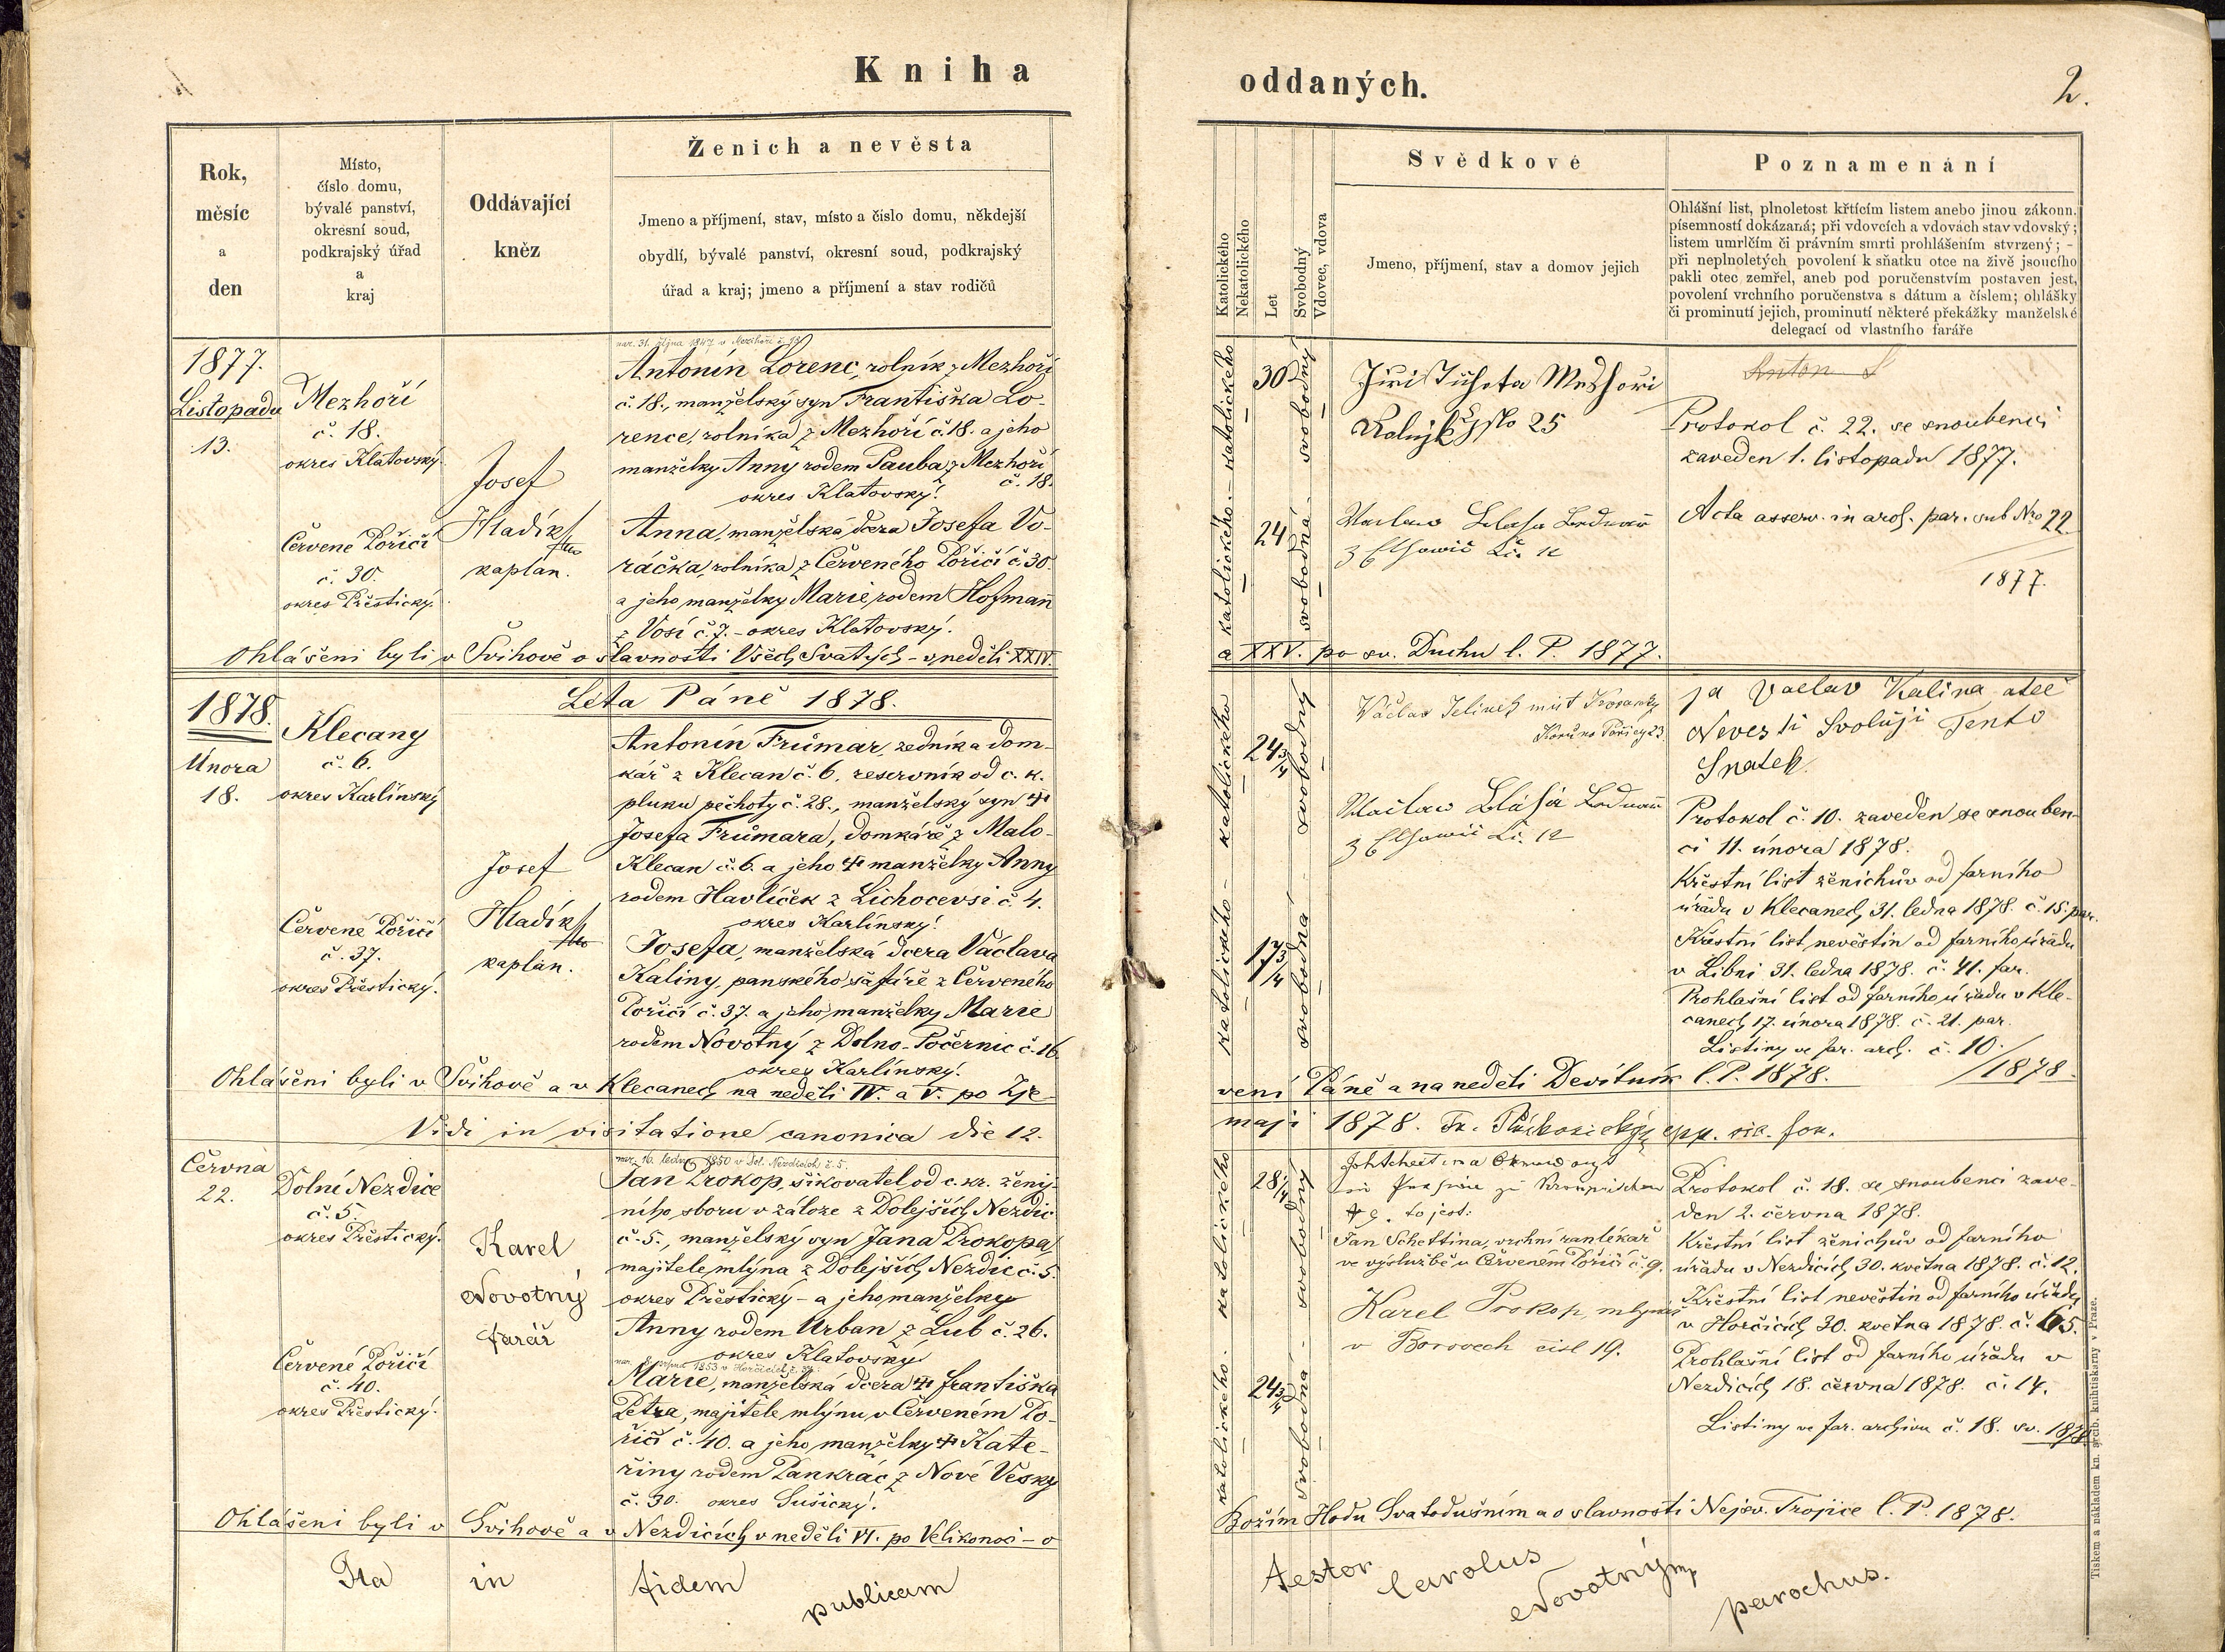 Kniha
oddaných.
2.
Rok,
měsíc
a
den
Místo,
číslo domu,
bývalé panství,
okresní soud,
podkrajský úřad
a
kraj
Oddávající
kněz
Ženich a nevěsta
Jmeno a příjmení, stav, místo a číslo domu, někdejší
obydlí, bývalé panství, okresní soud, podkrajský
úřad a kraj; jmeno a příjmení a stav rodičů
Katolického
Nekatolického
Let
Svobodný
Vdovec, vdova
Svědkové
Jmeno, příjmení, stav a domov jejich
Poznamenání
Ohlášní list, plnoletost křtícím listem anebo jinou zákonn.
písemností dokázaná; při vdovcích a vdovách stav vdovský;
listem umrlčím či právním smrti prohlášením stvrzený; –
při neplnoletých povolení k sňatku otce na živě jsoucího
pakli otec zemřel, aneb pod poručenstvím postaven jest,
povolení vrchního poručenstva s dátum a číslem; ohlášky
či prominutí jejich, prominutí některé překážky manželské
delegací od vlastního faráře
1877.
Listopadu
13.
Mezhoří
č. 18.
okres Klatovský.
Červené Poříčí
č. 30.
okres Přestický.
Josef
Hladík
kaplan.
nar. 31. října 1847 v Mezihoří č. 18
Antonín Lorenc, rolník z Mezhoří
č. 18., manželský syn Františka Lo-
rence, rolníka z Mezhoří č. 18. a jeho
manželky Anny rodem Pauba z Mezhoří
č. 18.
okres Klatovský.
Anna, manželská dcera Josefa Vo-
ráčka, rolníka z Červeného Poříčí č. 30.
a jeho manželky Marie, rodem Hofmann
z Vosí č. 7. – okres Klatovský.
katolického. – katolického
30
24
svobodná – svobodný
Jiří Tichota Mezhoři
Rolnjk čjslo 25
Waclaw Blaha
z č. 12
Anton L
Protokol č. 22. se snoubenci
zaveden 1. listopadu 1877.
Acta asserv. in arch. par. sub Nro 22
1877.
Ohlášeni byli v Švihově o slavnosti Všech Svatých – v neděli XXIV.
a XXV. po sv. Duchu l. P. 1877.
1878.
Února
18.
Léta Páně 1878.
Klecany
č. 6.
okres Karlínský
Červené Poříčí
č. 37.
okres Přestický.
Josef
Hladík
kaplan.
Antonín Frümar, zedník a dom-
kář z Klecan č. 6, reservník od c. k.
pluku pěchoty č. 28., manželský syn †
Josefa Frümara, domkáře z Malo-
Klecan č. 6. a jeho † manželky Anny
rodem Havlíček z Lichocevsi č. 4.
okres Karlínský.
Josefa, manželská dcera Václava
Kaliny, panského šafáře z Červeného
Poříčí č. 37. a jeho manželky Marie
rodem Novotný z Dolno-Počernic č. 16
okres Karlínský.
katolického – katolického
24 3/4
17 3/4
svobodná – svobodný
Václav Jelínek
23.
Wáclaw Bláha
z č. 12
ja Vaclav Kalina otec
Nevesti Svoluji Tento
Snatek
Protokol č. 10. zaveden se snouben-
ci 11. února 1878.
Křestní list ženichův od farního
úřadu v Klecanech 31. ledna 1878. č. 15. par.
Křestní list nevěstin od farního úřadu
v Libni 31. ledna 1878. č. 41. far.
Prohlašní list od farního úřadu v Kle-
canech 17. února 1878. č. 21. par.
Listiny ve far. arch. č. 10./1878
Ohlášeni byli v Švihově a v Klecanech na neděli IV. a V. po Zje-
vení Páně a na neděli Devítník l. P. 1878.
Vidi in visitatione canonica die 12.
maji 1878. Fr.
Června
22.
Dolní Nezdice
č. 5.
okres Přestický.
Červené Poříčí
č. 40.
okres Přestický.
Karel
Novotný
farář
nar. 16. ledna 1850 v Dol. Nezdicích č. 5.
Jan Prokop, šikovatel od c. kr. ženij-
ního sboru v záloze z Dolejších Nezdic
č. 5., manželský syn Jana Prokopa,
majitele mlýna z Dolejších Nezdic č. 5.
okres Přestický – a jeho manželky
Anny rodem Urban z Lub č. 26.
okres Klatovský.
1853 v Horčicích
Marie, manželská dcera † Františka
Petra, majitele mlýnu v Červeném Po-
říčí č. 40. a jeho manželky † Kate-
řiny rodem Pankrác z Nové Vésky
č. 30. okres Sušický.
katolického. – katolického
28 1/4
24 3/4
svobodná – svobodný
9. to jest:
Jan Schettina, vrchní ranlékař
ve výslužbě v Červeném Poříčí č. 9.
Karel Prokop, mlynář
v Borovech čisl 19.
Protokol č. 18. se snoubenci zave-
den 2. června 1878.
Křestní list ženichův od farního
úřadu v Nezdicích 30. května 1878. č. 12.
Křestní list nevěstin od farního úřadu
v Horčicích 30. května 1878. č. 65.
Prohlašní list od farního úřadu v
Nezdicích 18. června 1878. č. 14.
Listiny ve far. archivu č. 18. sv. 1878
Ohlášeni byli v Švihově a v Nezdicích v neděli VI. po Velikonoci – o
Božím Hodu Svatodušním a o slavnosti Nejsv. Trojice l. P. 1878.
Ita in fidem publicam
testor Carolus Novotný mp parochus.
Tiskem a nákladem kn. arcib. knihtiskárny v Praze.